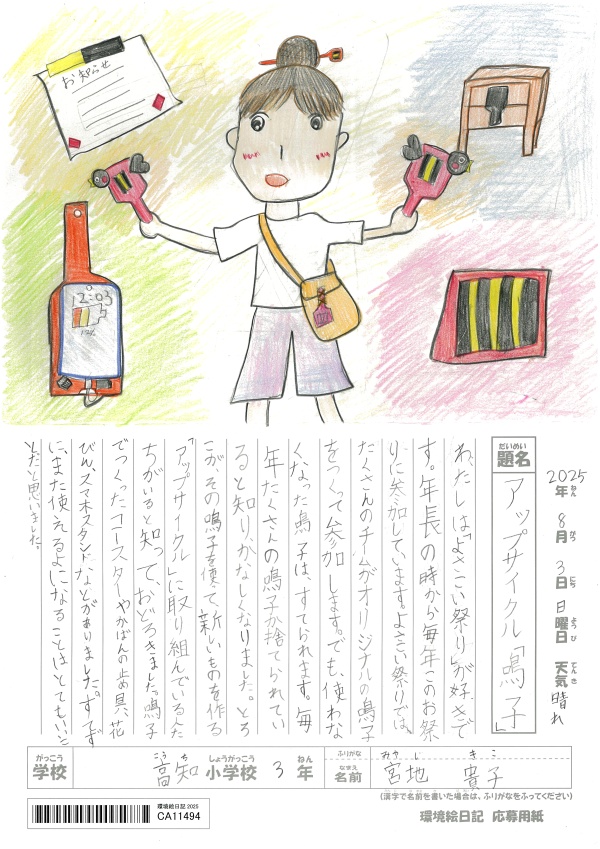 お知らせ
12:03
2025年 8月 3日 日曜日 天気 晴れ
ねん がつ にち ようび てんき
だいめい
題名
アップサイクル「鳴子」
わたしは「よさこい祭り」が好きで
す。年長の時から毎年このお祭
りに参加しています。よさこい祭りでは、
たくさんのチームがオリジナルの鳴子
をつくって参加します。でも、使わな
くなった鳴子は、すてられます。毎
年たくさんの鳴子が捨てられてい
ると知りかなしくなりました。ところ
こが、その鳴子を使て、新しいものを作る
「アップサイクル」に取り組んでいる人た
ちがいると知って、おどろきました。鳴子
でつくったコースターやかばんの止め具、花
びん、スマホスタンドなどがありました。すてず
に、また使えるよになることはとてもいいこ
とだと思いました。
がっこう
学校
こうち しょうがっこう ねん
高知 小学校 3 年
ふりがな
みやじ きこ
なまえ
名前
宮地 貴子
(漢字で名前を書いた場合は、ふりがなをふってください)
環境絵日記 2025
CA11494
環境絵日記 応募用紙